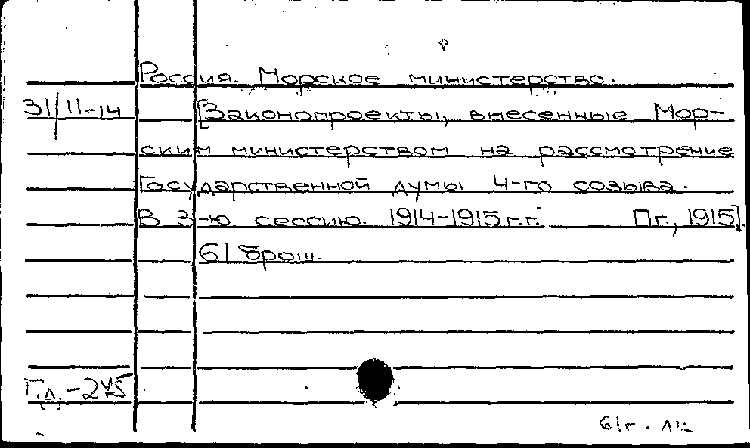 Россия. Морское министерство.
31/11-14 [Законопроекты, внесенные Мор-
ским министерством на рассмотрение
Государственной думы 4-го созыва.
В 3-ю сессию. 1914-1915 г.г. Пг., 1915].
61 брош.
Гл.-245